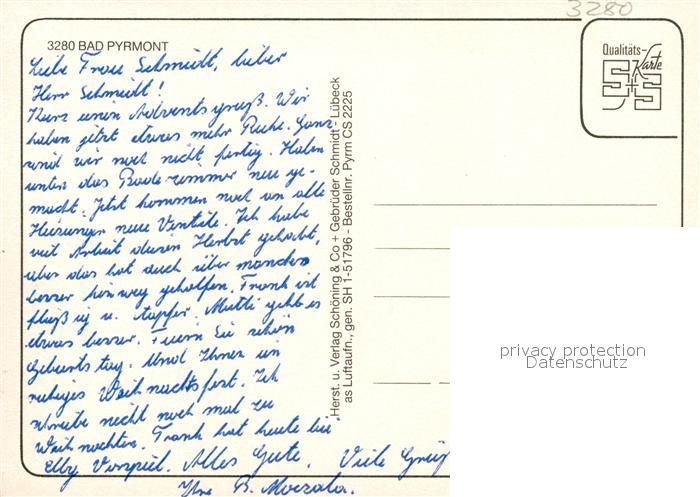 3280
3280 BAD PYRMONT
Qualitäts-Karte
S+S
Liebe Frau Schmidt, lieber
Herr Schmidt!
Kurz einen Adventsgruß. Wir
haben jetzt etwas mehr Ruhe. Ganz
sind wir noch nicht fertig. Haben
unten das Badezimmer neu ge-
macht. Jetzt kommen noch an alle
Heizungen neue Ventile. Ich habe
viel Arbeit diesen Herbst gehabt,
aber das hat auch über manches
besser hinweg geholfen. Frank ist
fleißig u. tapfer. Mutti geht es
etwas besser. Feiern Sie schön
Geburtstag. Und Ihnen ein
ruhiges Weihnachtsfest. Ich
schreibe nicht noch mal zu
Weihnachten. Frank hat heute bei
Elly Vorspiel. Alles Gute. Viele Grüß
Ihre B.
Herst. u. Verlag Schöning & Co + Gebrüder Schmidt · Lübeck
as Luftaufn., gen. SH 1-51796 - Bestellnr. Pyrm CS 2225
privacy protection
Datenschutz